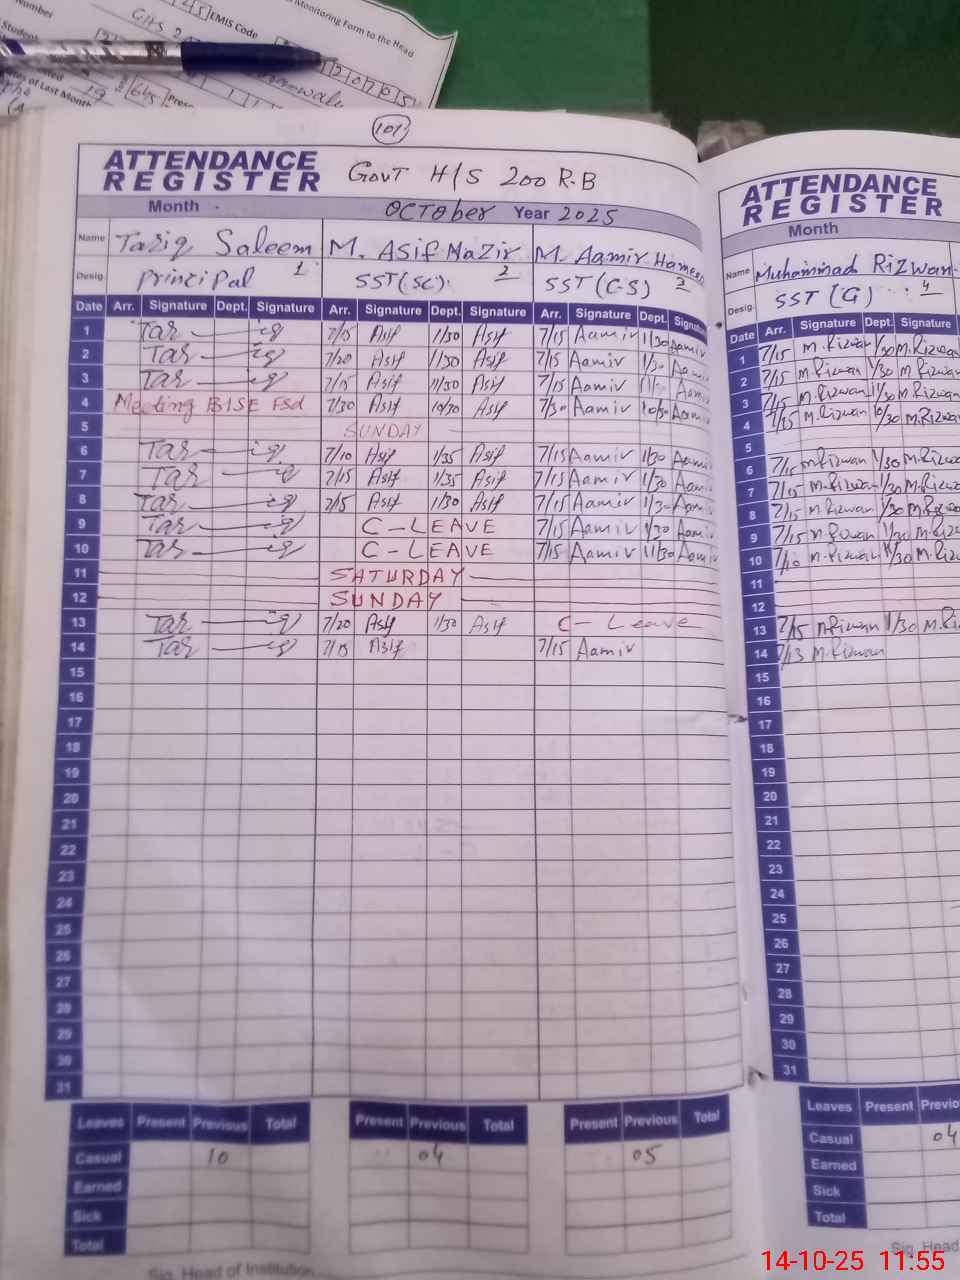 Number
Student
EMIS Code
Monitoring Form to the Head
of Last Month
101
ATTENDANCE
REGISTER
GOVT H/S 200 R.B
Month OCTOBER Year 2025
Name Tariq Saleem M. Asif Nazir M. Aamir Hameed
Desig. Principal 1 SST(SC) 2 SST(C-S) 3
Date Arr. Signature Dept. Signature Arr. Signature Dept. Signature Arr. Signature Dept. Signature
1 Tar iq 7/15 Asif 1/30 Asif 7/15 Aamir 1/30 Aamir
2 Tar iq 7/20 Asif 1/30 Asif 7/15 Aamir 1/30 Aamir
3 Tar iq 7/15 Asif 11/30 Asif 7/15 Aamir Aamir
4 Meeting BISE Fsd 7/30 Asif 10/30 Asif 7/30 Aamir 10/30 Aamir
5 SUNDAY
6 Tar iq 7/10 Asif 1/35 Asif 7/15 Aamir 1/30 Aamir
7 Tar iq 7/15 Asif 1/35 Asif 7/15 Aamir 1/30 Aamir
8 Tar iq 7/15 Asif 1/30 Asif 7/15 Aamir 1/30 Aamir
9 Tar iq C-LEAVE 7/15 Aamir 1/30 Aamir
10 Tar iq C-LEAVE 7/15 Aamir 11/30 Aamir
11 SATURDAY
12 SUNDAY
13 Tar iq 7/20 Asif 1/30 Asif C-Leave
14 Tar iq 7/15 Asif 7/15 Aamir
15
16
17
18
19
20
21
22
23
24
25
26
27
28
29
30
31
Leaves Present Previous Total Present Previous Total Present Previous Total
Casual 10 04 05
Earned
Sick
Total
Sig. Head of Institution
ATTENDANCE
REGISTER
Month
Name Muhammad Rizwan
Desig. SST (G) 4
Date Arr. Signature Dept. Signature
1 7/15 M.Rizwan 1/30 M.Rizwan
2 7/15 M.Rizwan 1/30 M.Rizwan
3 7/15 M.Rizwan M.Rizwan
4 7/15 M.Rizwan 10/30 M.Rizwan
5
6 7/15 M.Rizwan 1/30 M.Rizwan
7 7/15 M.Rizwan 1/30 M.Rizwan
8 7/15 M.Rizwan 1/30 M.Rizwan
9 7/15 M.Rizwan M.Rizwan
10 7/10 M.Rizwan M.Rizwan
11
12
13 7/15 M.Rizwan 1/30 M.Riz
14 7/13 M.Rizwan
15
16
17
18
19
20
21
22
23
24
25
26
27
28
29
30
31
Leaves Present Previo
Casual 04
Earned
Sick
Total
Sig. Head
14-10-25 11:55